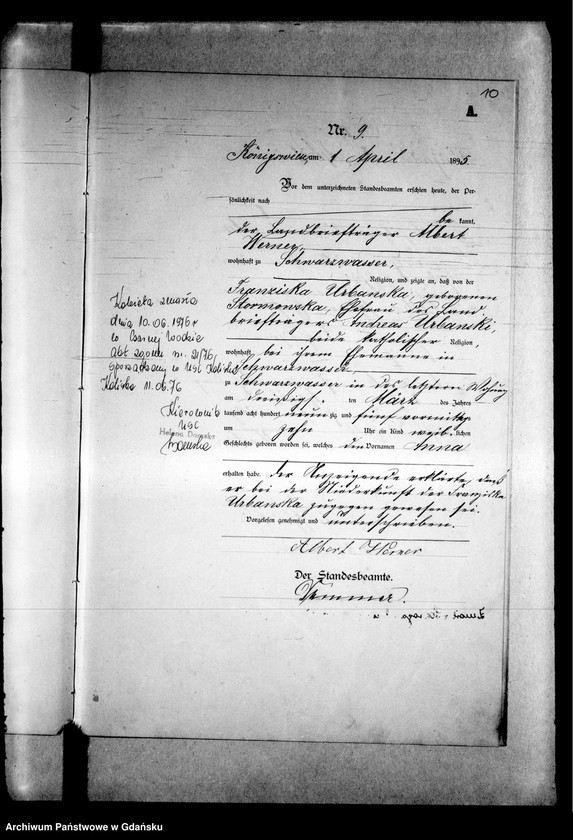 10
A.
Nr. 9.
Königswiese, am 1 April 1895
Vor dem unterzeichneten Standesbeamten erschien heute, der Per-
sönlichkeit nach
be kannt,
der Landbriefträger Albert
Werner,
wohnhaft zu Schwarzwasser,
Religion, und zeigte an, daß von der
Franziska Urbanska, geborenen
Ehefrau des Land
briefträgers Andreas Urbanski,
beide katholischer Religion,
wohnhaft bei ihrem Ehemanne in
Schwarzwasser,
zu Schwarzwasser in des letztern Wohnung
am dreißigs ten März des Jahres
tausend acht hundert neun zig und fünf vormittags
um zehn Uhr ein Kind weib lichen
Geschlechts geboren worden sei, welches den Vornamen Anna
erhalten habe. Der Anzeigende erklärte, daß
er bei der Niederkunft der Franziska
Urbanska zugegen gewesen sei.
Vorgelesen genehmigt und unterschrieben.
Albert Werner
Der Standesbeamte.
Kobieta zmarła
dnia 10.06.1976 r
w Czarnej Wodzie
akt zgonu nr. 21/76,
sporządzony w USC Kaliska
Kaliska 11.06.76
Kierownik
USC
Archiwum Państwowe w Gdańsku